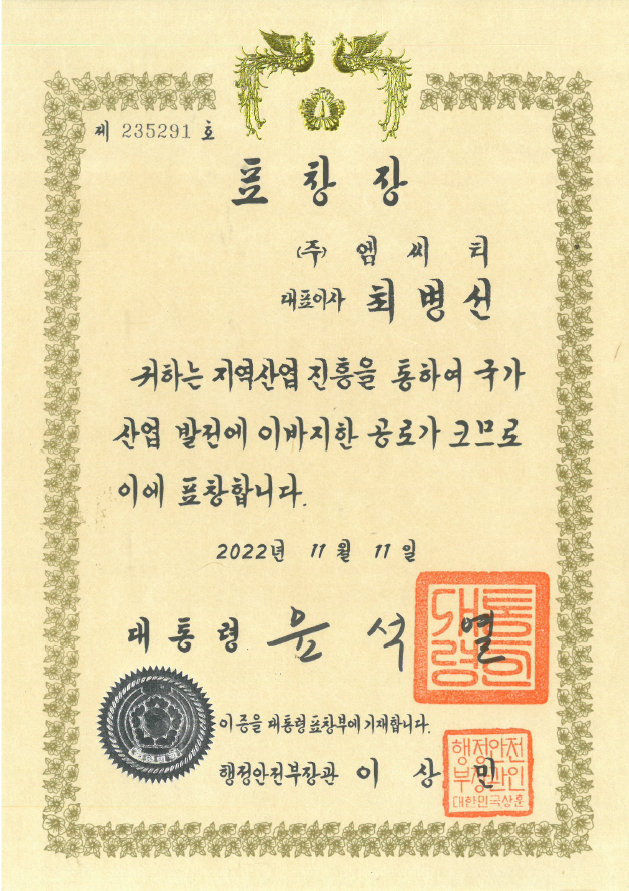 제 235291 호
표창장
(주) 엠씨티
대표이사 최병선
귀하는 지역산업 진흥을 통하여 국가
산업 발전에 이바지한 공로가 크므로
이에 표창합니다.
2022년 11월 11일
대통령 윤석열
대통령의인
이 증을 대통령표창부에 기재합니다.
행정안전부장관 이상민
행정안전
부장관인
대한민국상훈